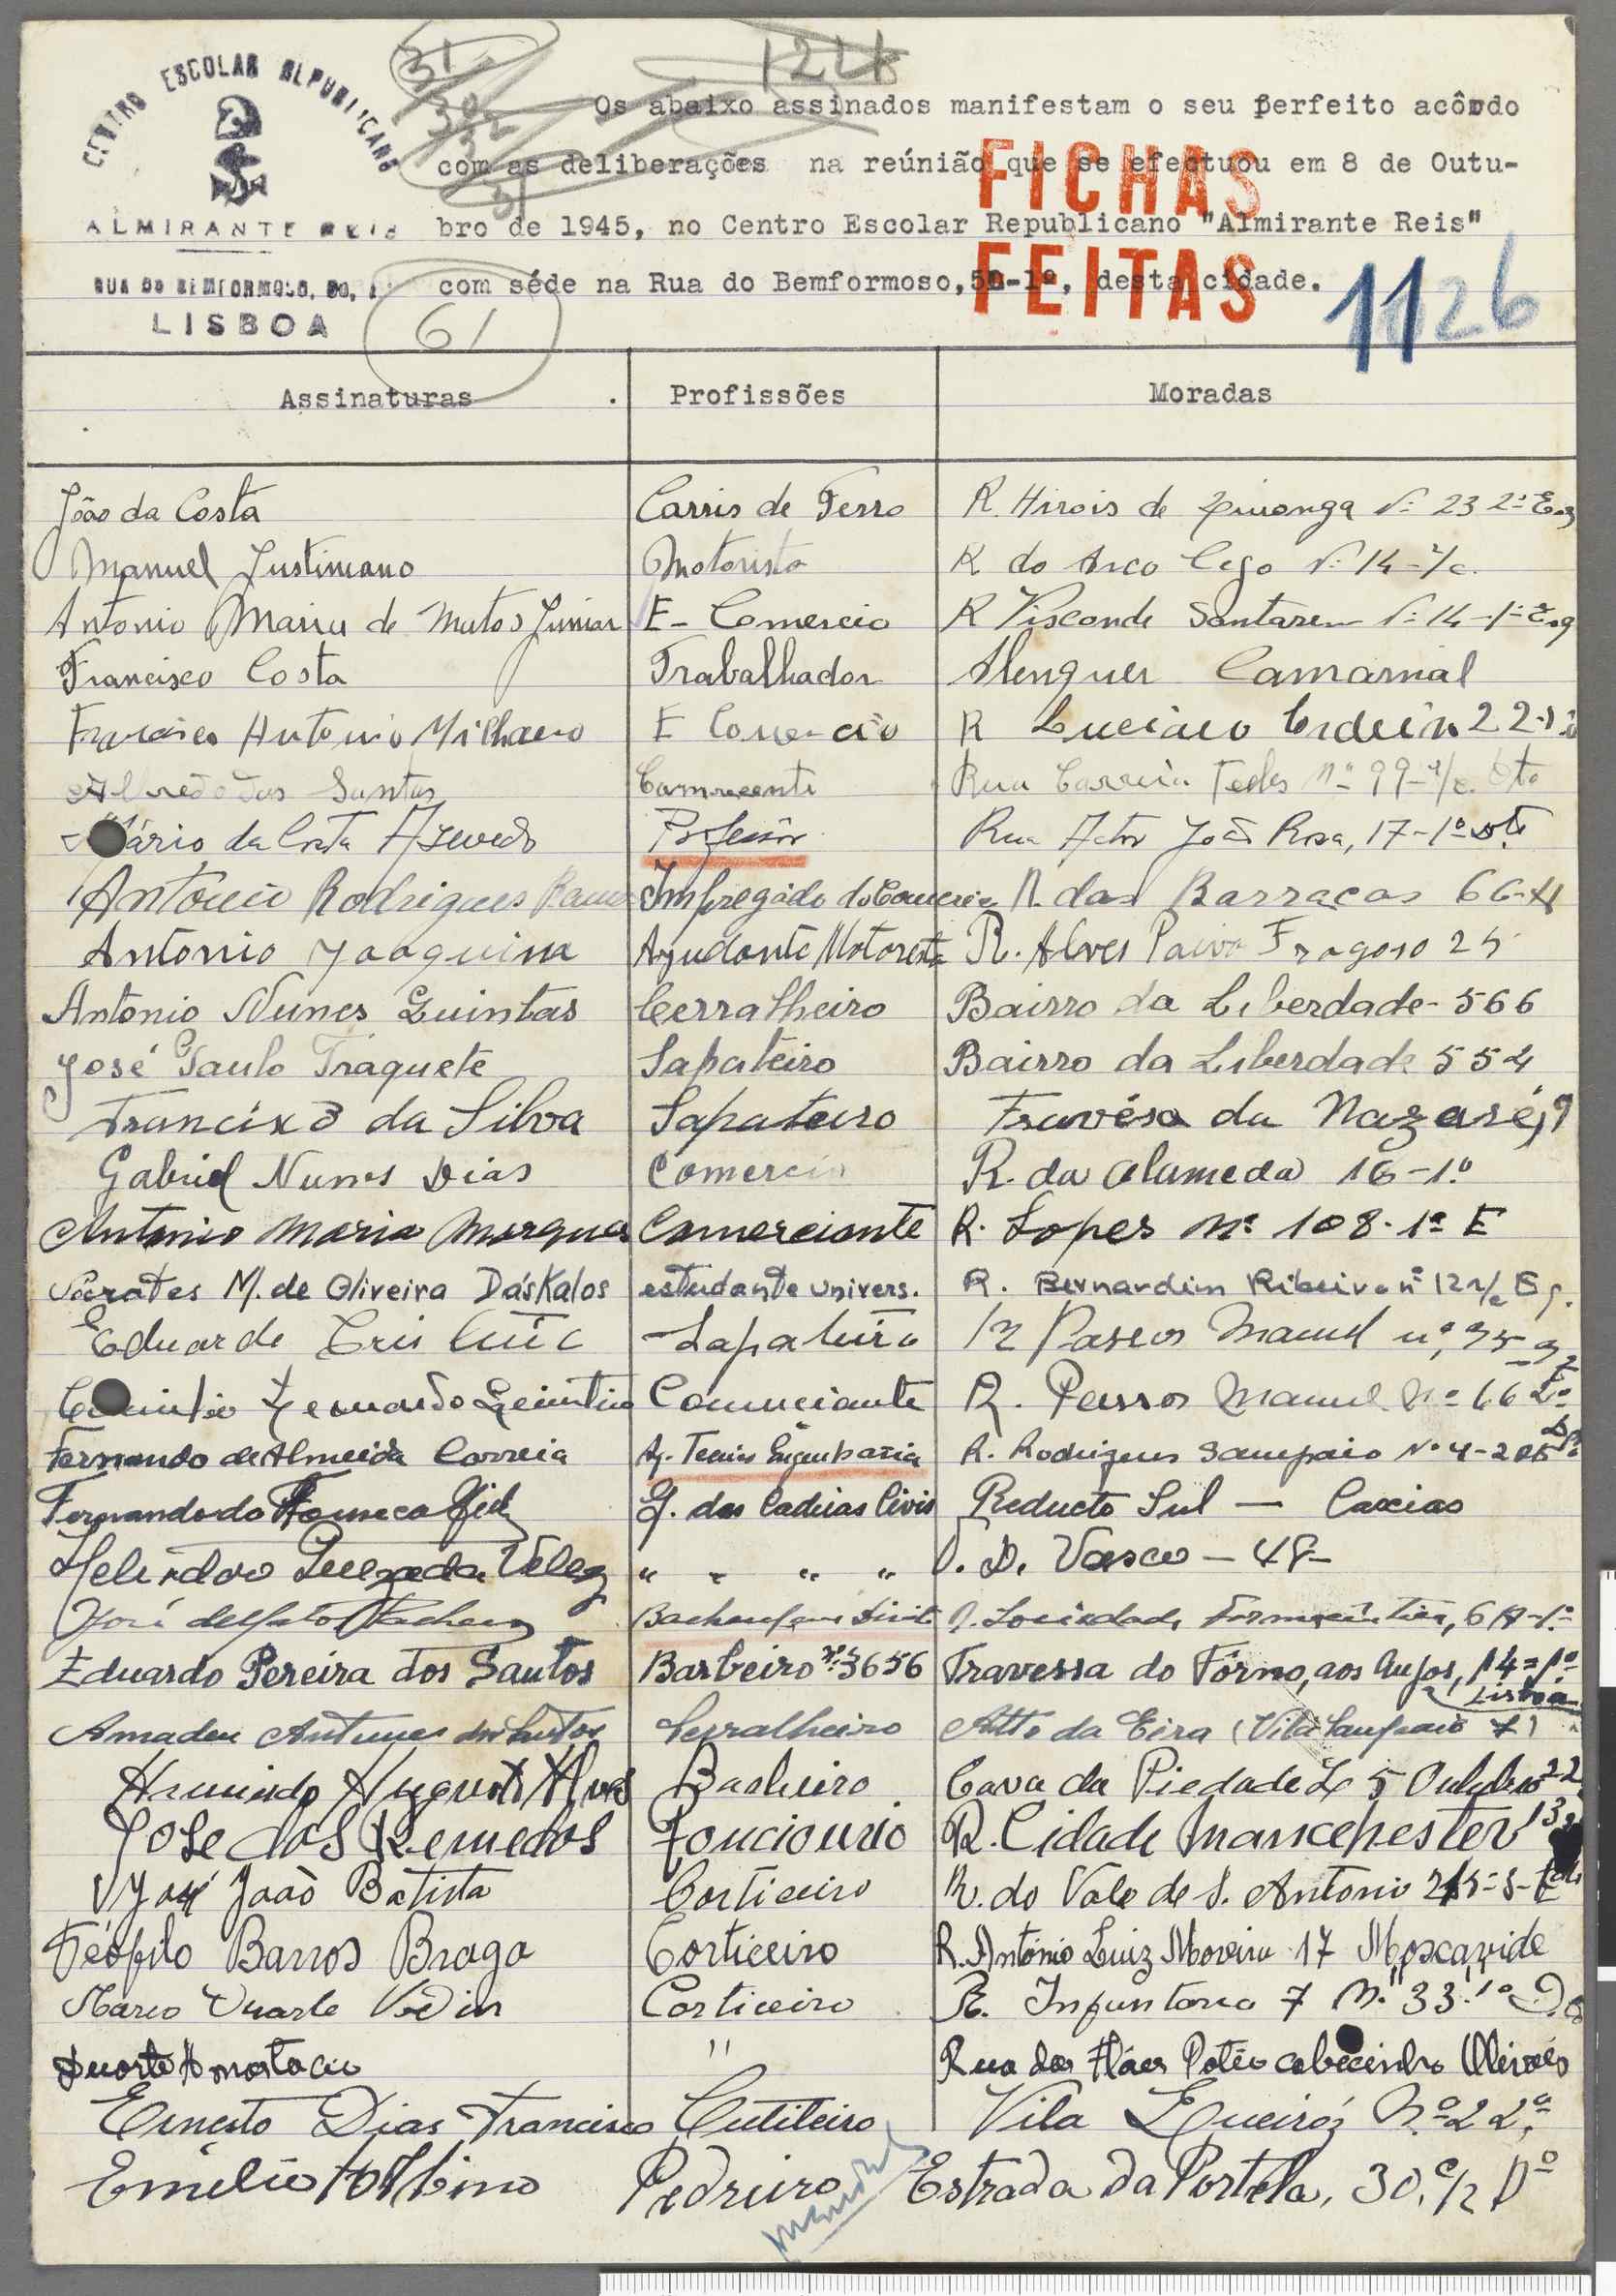 CENTRO ESCOLAR REPUBLICANO
ALMIRANTE REIS
RUA DO BEMFORMOSO, 50, 1
LISBOA
31
30
32
31
61
1226
Os abaixo assinados manifestam o seu perfeito acôrdo
com as deliberações na reúnião que se efectuou em 8 de Outu-
bro de 1945, no Centro Escolar Republicano "Almirante Reis"
com séde na Rua do Bemformoso, 50-1º, desta cidade.
FICHAS
FEITAS
1126
Assinaturas Profissões Moradas
João da Costa Carris de Ferro R. Hirois de Quionga Nº 23 2º Esq
Manuel Justiniano Motorista R do Arco Cego Nº 14-r/c.
Antonio Maria de Matos Junior E- Comercio R Visconde Santarem Nº 14-1º Esq
Francisco Costa Trabalhador Alenquer Camarnal
Francisco Antonio Milhano E Comercio R Luciano Cordeiro 22-1º
Alfredo dos Santos Comerciante Rua Correia Teles nº 99-r/c. Dto
Mário da Costa Azevedo Professor Rua Actor João Rosa, 17-1º Dtº
António Rodrigues Ramos Impregado do Comercio R. das Barracas 66-
Antonio Joaquim Ajudante Motorista R. Alves Paiva Fragoso 25
Antonio Nunes Quintas Cerralheiro Bairro da Liberdade- 566
José Paulo Traquete Sapateiro Bairro da Liberdade 554
Francisco da Silva Sapateiro Travésa da Nazaré, 9
Gabriel Nunes Dias Comercio R. da Alameda 16-1º
Antonio Maria Marques Comerciante R. Lopes Nº 108-1º E
Sócrates M. de Oliveira Dáskalos estudante univers. R. Bernardim Ribeiro nº 12 r/c Esq.
Eduardo Sapateiro R Passos Manuel nº 95
Quintino Comerciante R. Passos Manuel Nº 66 2º
Fernando de Almeida Correia Ag. Tecnico Engenharia R. Rodrigues Sampaio Nº 4-2º
Fernando da Fonseca G. das Cadeias Civis Reducto Sul — Caxias
Heliodoro Quezada Velez " " " " D. Vasco - 48-
José Pacheco Bacharel em Direito R. Sociedade Farmacêutica, 6 -1º
Eduardo Pereira dos Santos Barbeiro nº 3656 Travessa do Fôrno, aos Anjos, 14=1º
Lisboa
Amadeu Antunes dos Santos Serralheiro Alto da Eira (Vila Sampaio 7)
Armindo Augusto Alves Cova da Piedade 5 Outubro 22
José dos Remedios R. Cidade Manchester 13
José João Batista Corticeiro R. do Vale de S. Antonio
Teófilo Barros Braga Corticeiro R. António Luiz Moreira 17 Moscavide
Mario Duarte Corticeiro R. Infantaria 7 Nº 33
Duarte " Rua das Flores Páteo cabecinho Olivais
Ernesto Dias Francisco Cutileiro Vila Queiróz Nº 22
Emilio Albino Pedreiro Estrada da Portela, 30,